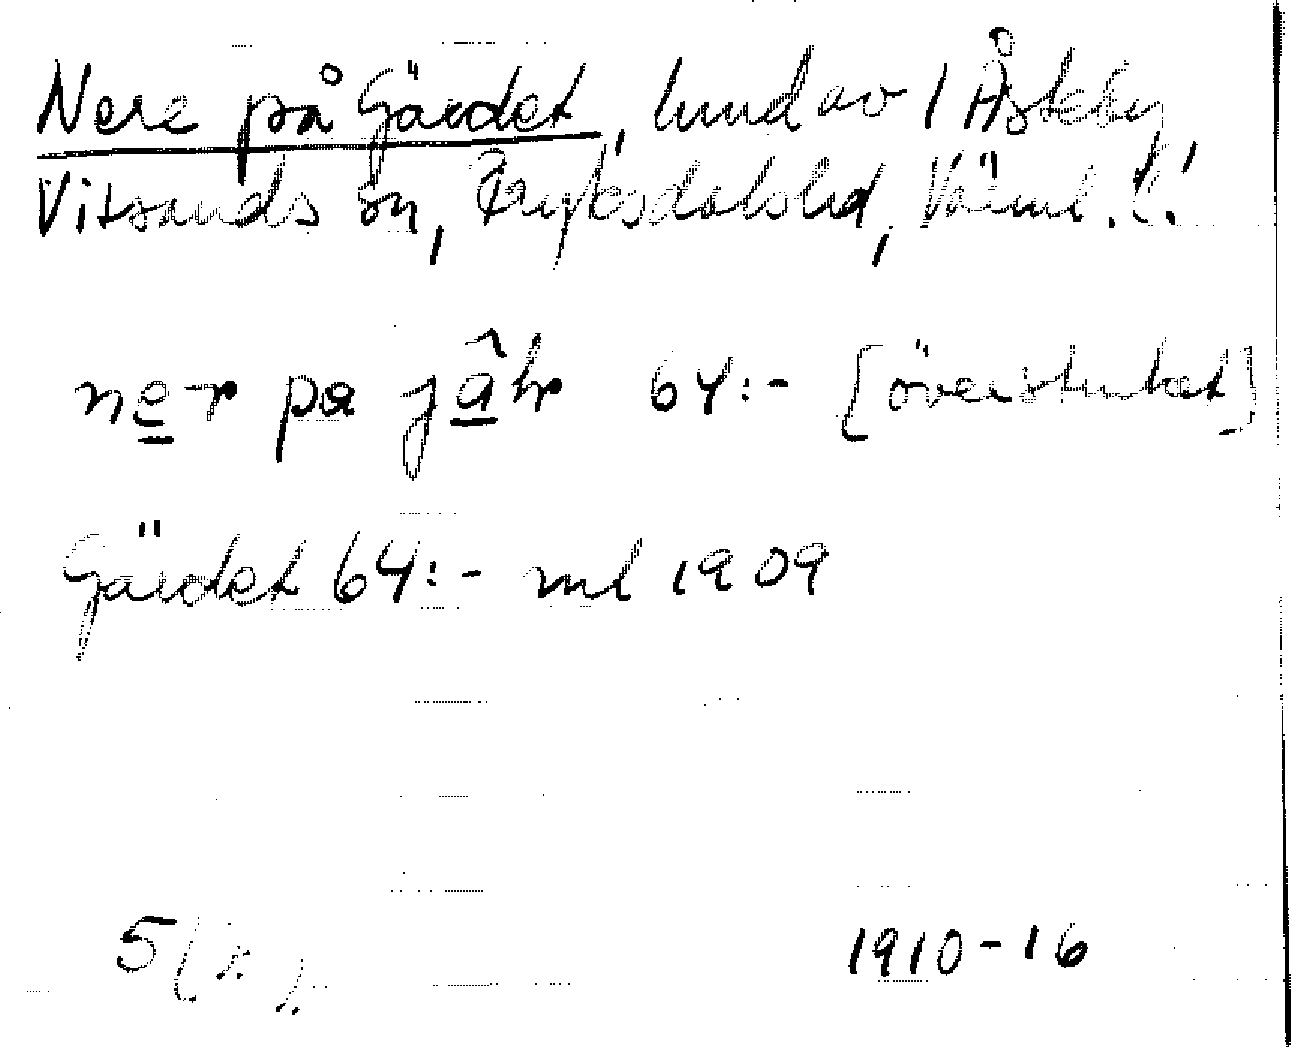 Nere på Gärdet, hmd av 1 Åsteby
Vitsands sn, Fryksdals hd, Värml. l.
ner pa jâḷr 64:- [överstruket]
Gärdet 64:- ml 1909
5 (x)
1910-16